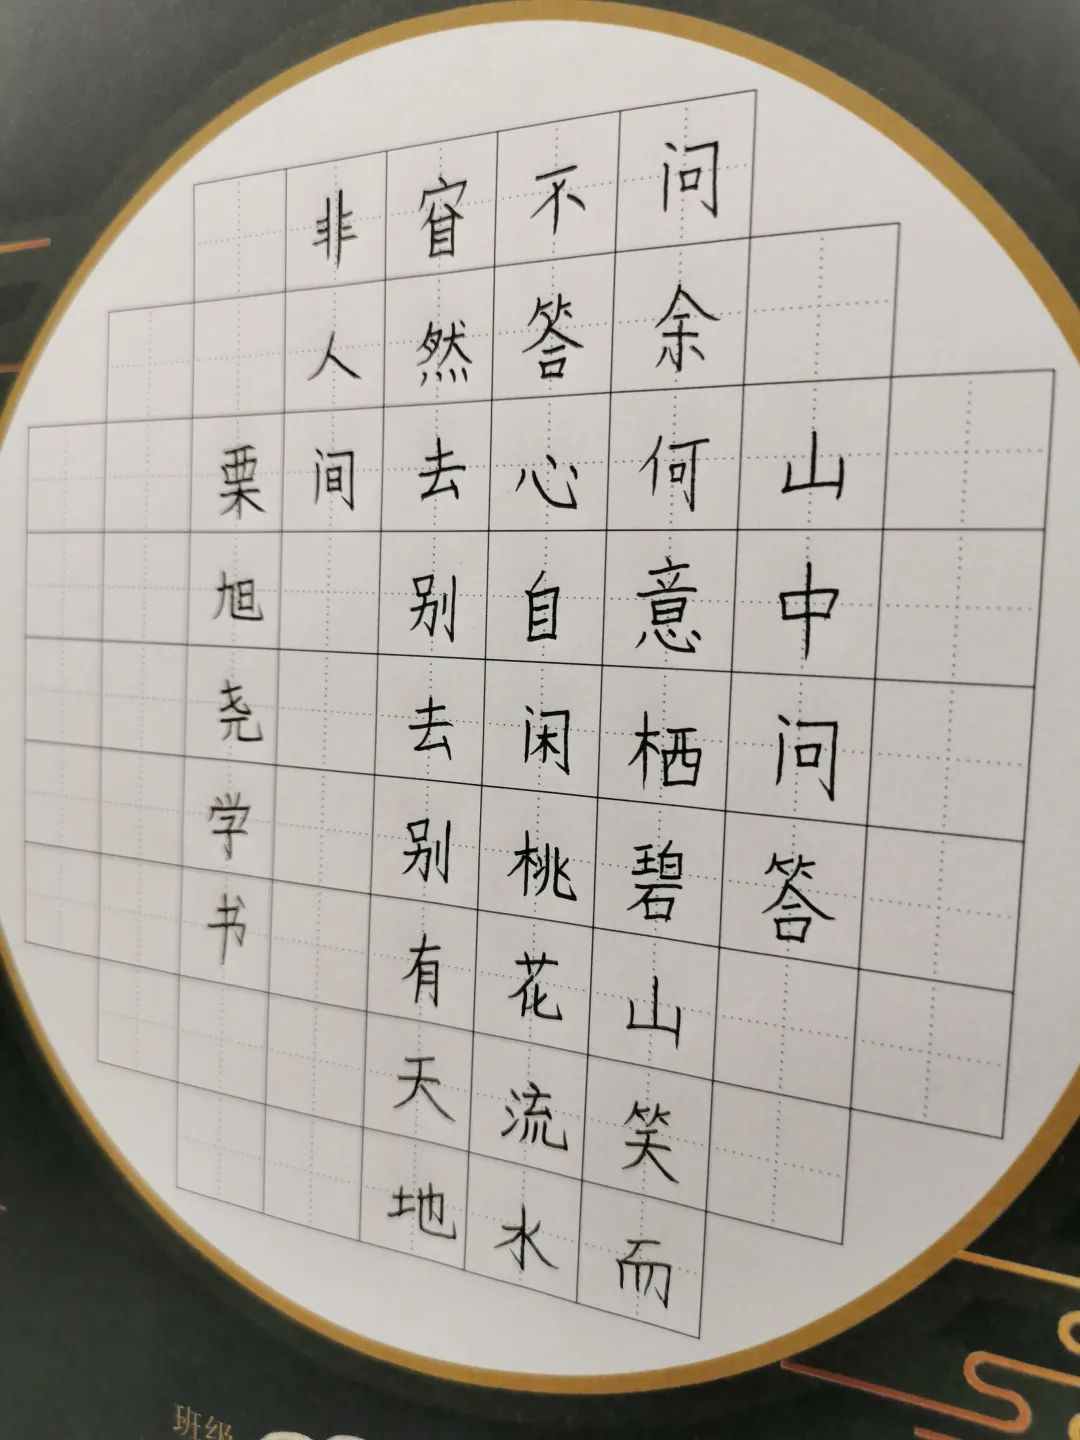 山中问答
问余何意栖碧山笑而
不答心自闲桃花流水
窅然去别去别有天地
非人间
栗旭尧学书
班级